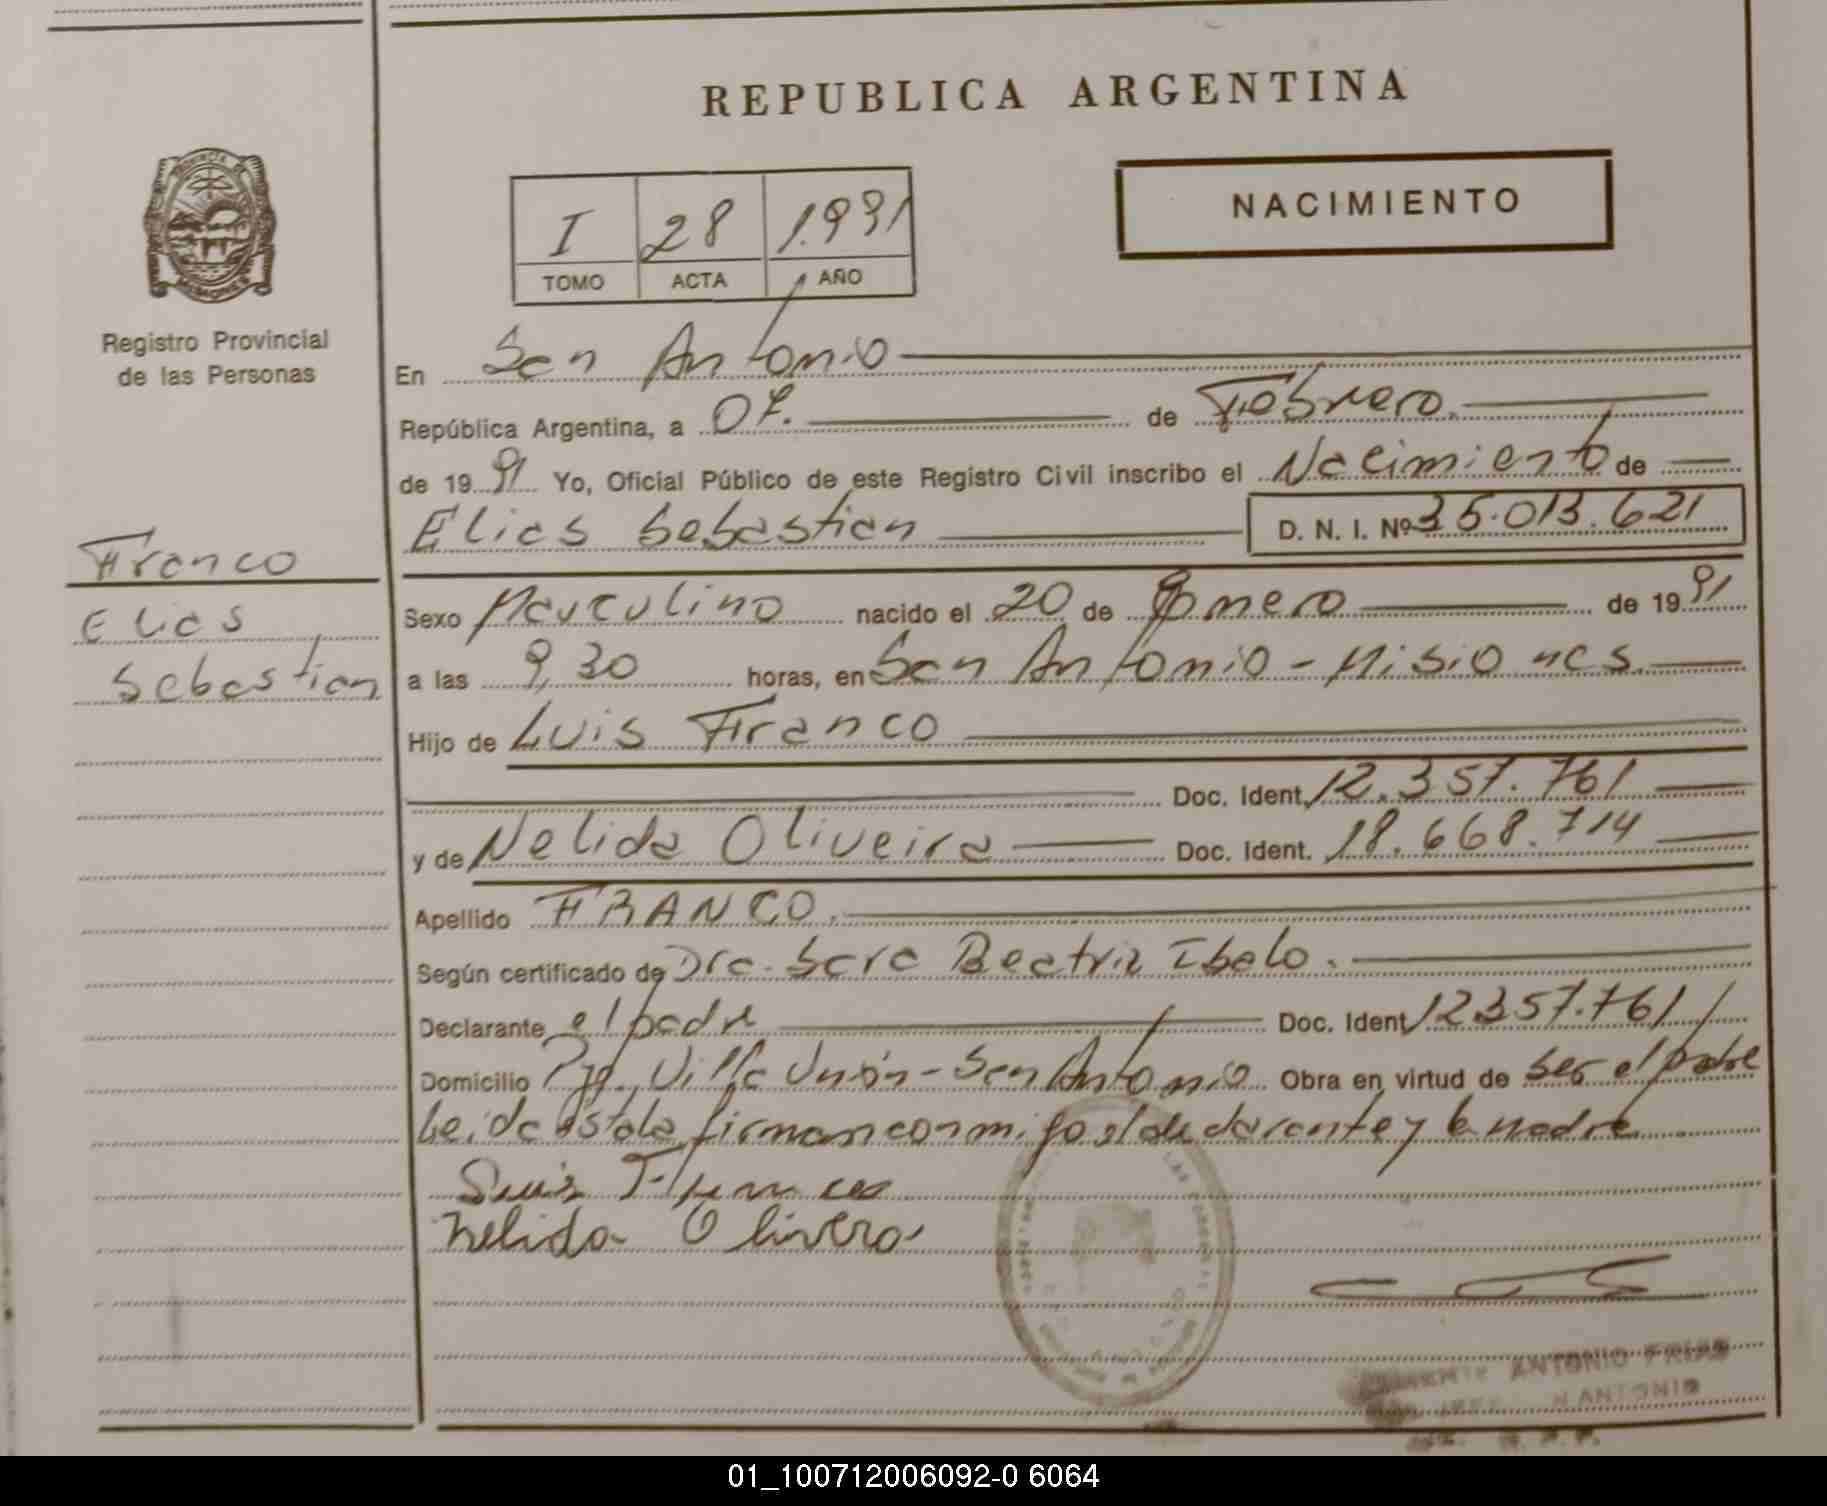 REPUBLICA ARGENTINA
NACIMIENTO
I 28 1.991
TOMO ACTA AÑO
PROVINCIA
MISIONES
Registro Provincial
de las Personas
En San Antonio
República Argentina, a 07. de Febrero.
de 19 91 Yo, Oficial Público de este Registro Civil inscribo el Nacimiento de
Elias Sebastian D. N. I. Nº 35.013.621
Franco
Elias
Sebastian
Sexo Masculino nacido el 20 de Enero de 19 91
a las 9,30 horas, en San Antonio - Misiones.
Hijo de Luis Franco
Doc. Ident. 12.357.761
y de Nelida Oliveira Doc. Ident. 18.668.714
Apellido FRANCO.
Según certificado de Dra. Sara Beatriz Ibalo.
Declarante el padre Doc. Ident 12357.761
Domicilio Pje. Villa Unión - San Antonio Obra en virtud de ser el padre
Leida esta la firman conmigo el declarante y la madre
Luis Franco
Nelida Olivera
ANTONIO FRIAS
N ANTONIO
R. P. P.
01_100712006092-0 6064